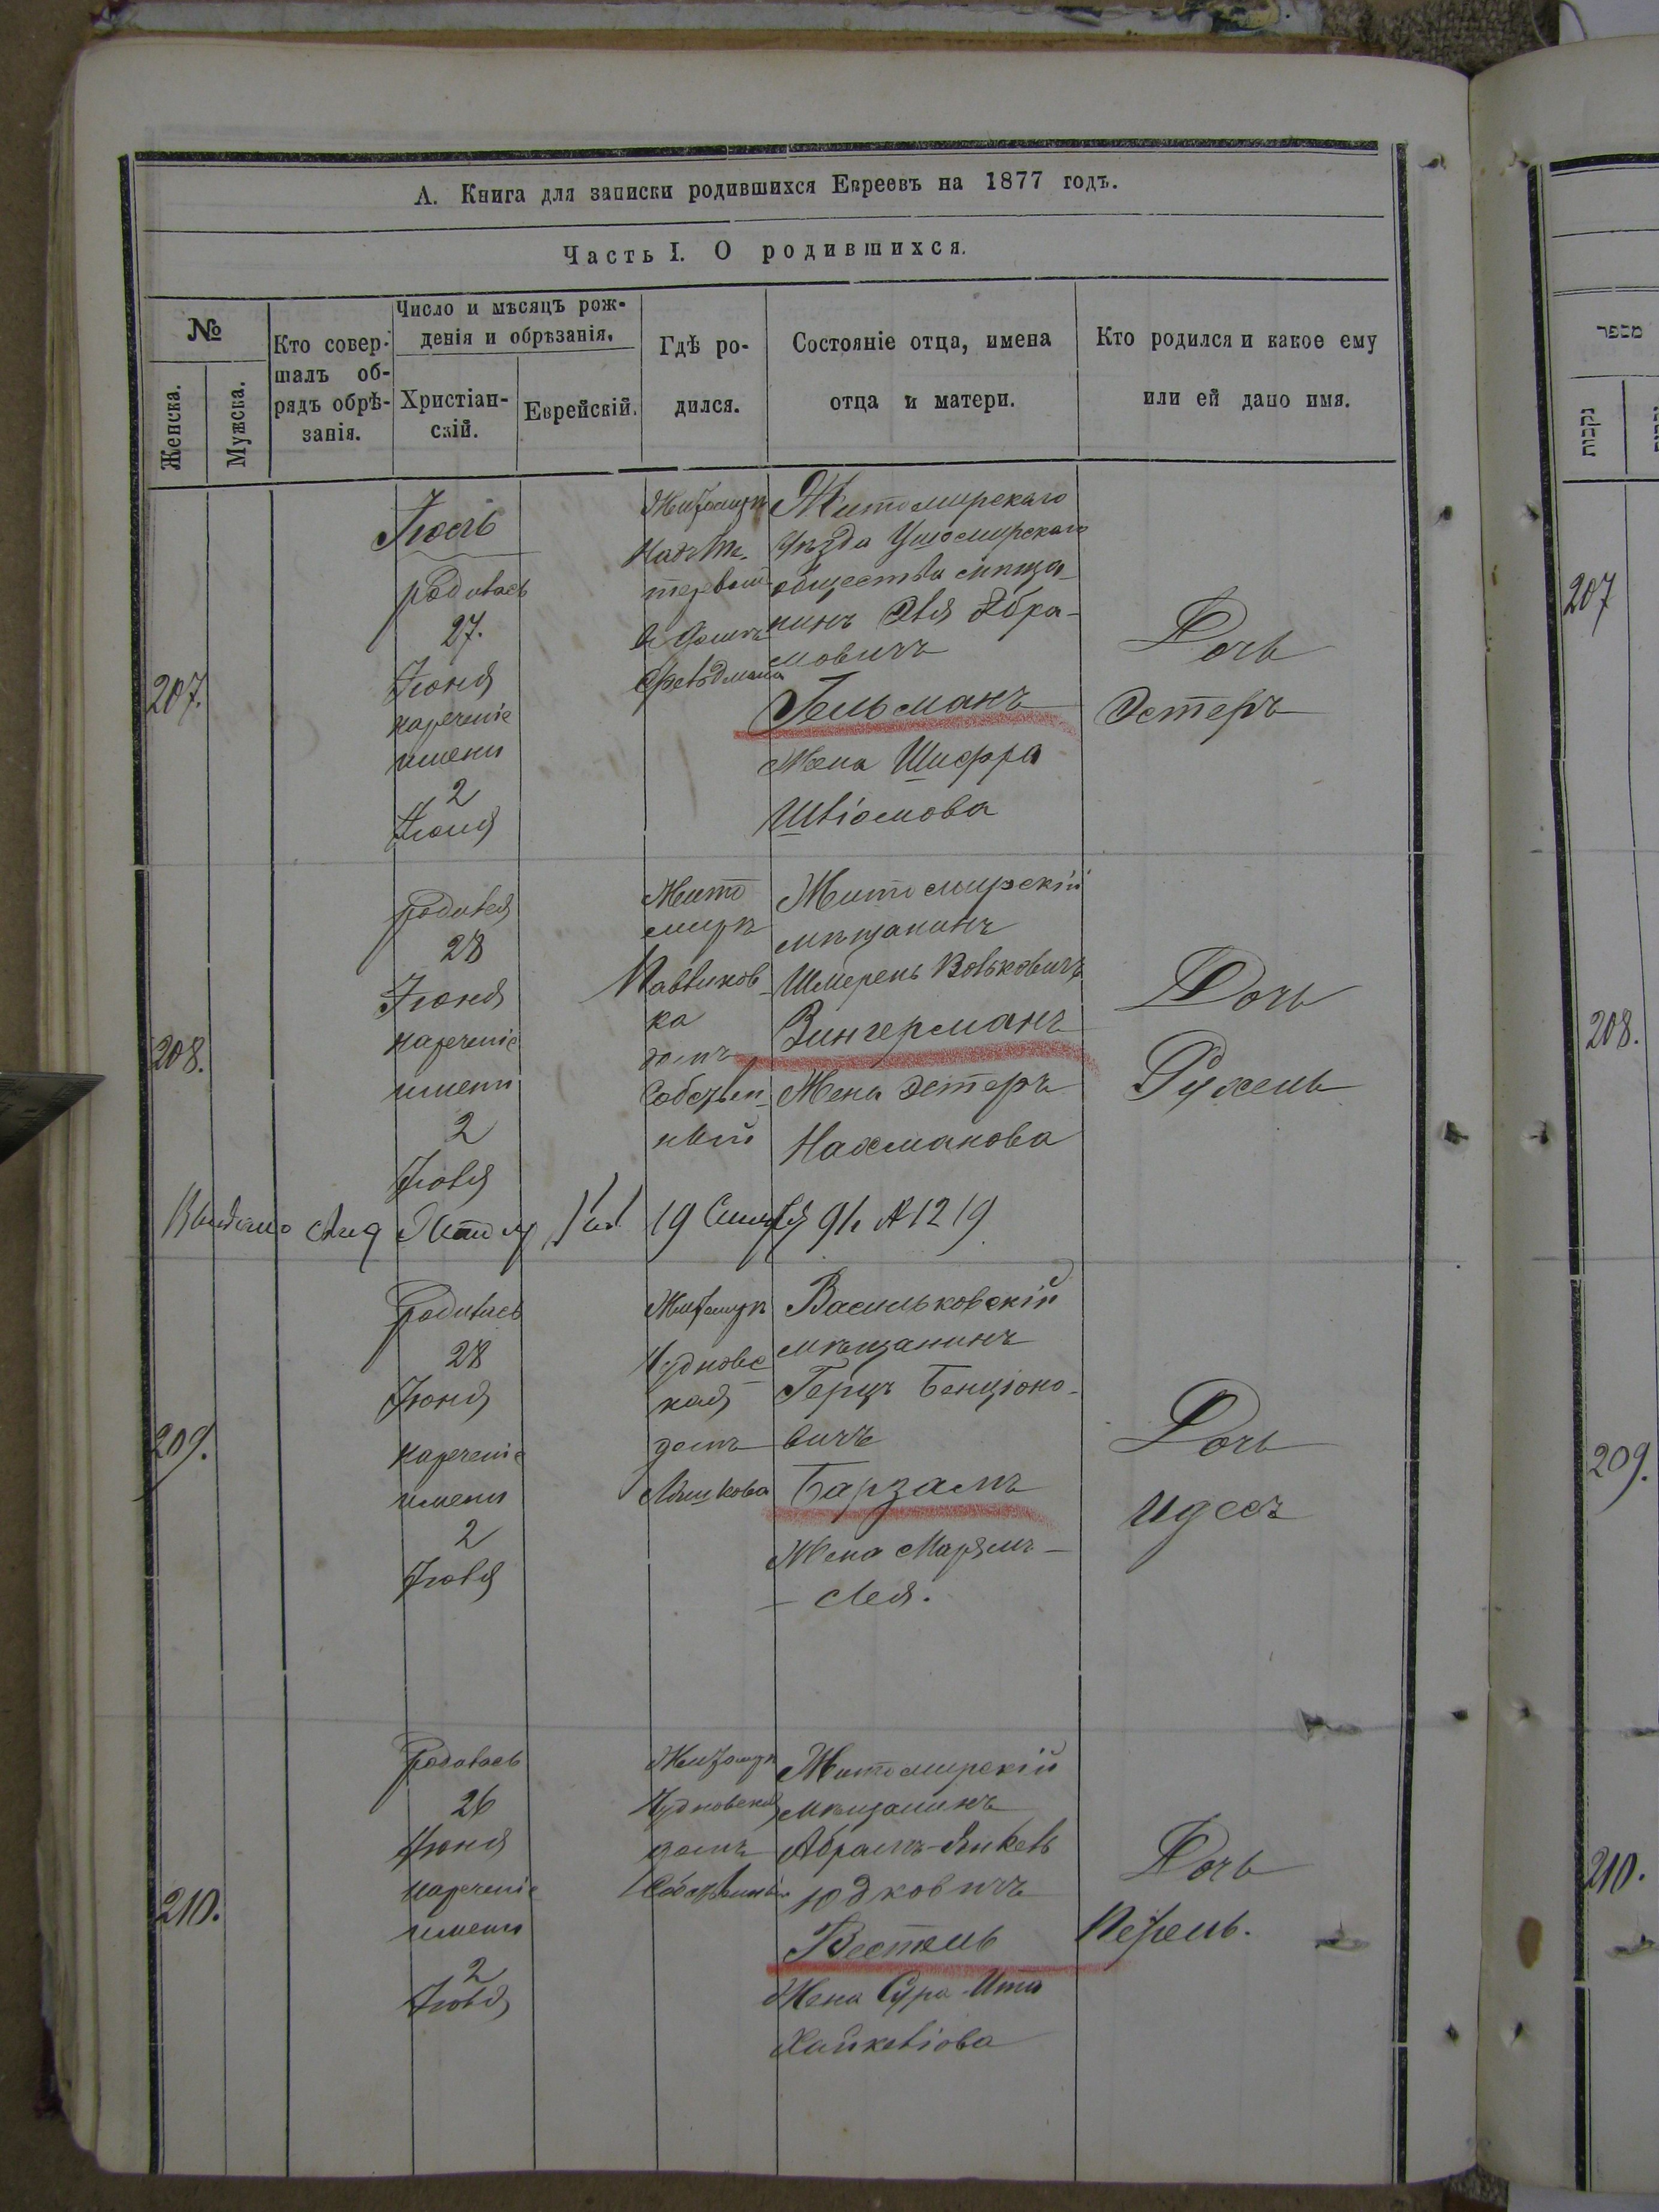 А. Книга для записки родившихся Евреевъ на 1877 годъ.
Часть I. О родившихся.
№
Женска.
Мужска.
Кто совер-
шалъ об-
рядъ обрѣ-
занія.
Число и мѣсяцъ рож-
денія и обрѣзанія.
Христіан-
скій.
Еврейскій.
Гдѣ ро-
дился.
Состояніе отца, имена
отца и матери.
Кто родился и какое ему
или ей дано имя.
207.
Іюль
родилась
27.
Іюня
нареченіе
имени
2
Іюля
Житомиръ
Надъ Те-
теревомъ
въ домѣ
Житомирскаго
уѣзда Ушомирскаго
общества мѣща-
нинъ Эля Абра-
мовичъ
Гельманъ
Жена Шифра
Шліомова
Дочь
Эстеръ
208.
родилась
28
Іюня
нареченіе
имени
2
Іюля
Жито
миръ
Павликов
ка
домъ
Собствен-
ный
Житомирскій
мѣщанинъ
Шмерель Вольковичъ
Зингерманъ
Жена Эстеръ
Нахманова
Дочь
Рухель
Выдано 19 91 № 1219
209.
родилась
28
Іюня
нареченіе
имени
2
Іюля
Житомиръ
Чудновс
кая
домъ
Васильковскій
мѣщанинъ
Герцъ Бенціоно-
вичъ
Барзамъ
Жена Марямъ-
- Лея.
Дочь
Идесъ
210.
родилась
26
Іюня
нареченіе
имени
2
Іюля
Житомиръ
Чудновская
домъ
Собственный
Житомирскій
мѣщанинъ
Абрамъ-Янкель
Юдковичъ
Вестель
Жена Сура Ита
Дочь
Перель.
מספר
נקבות
207
208.
209.
210.